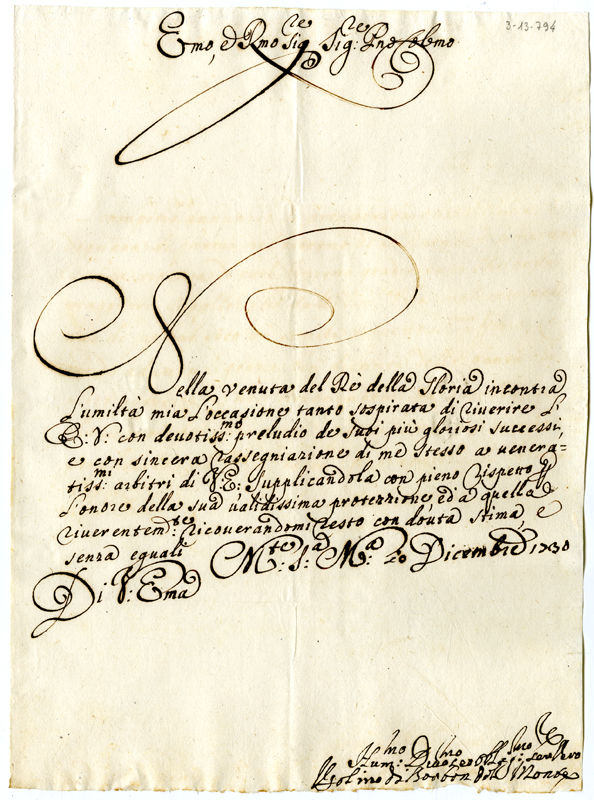 3-13-794
Emo, e Rmo Sig.re Sig.re Pne Colmo
Nella venuta del Rè della Gloria incontra
l'umiltà mia l'occasione tanto sospirata di riverire l'
E: V: con devotiss:mo preludio de suoi più gloriosi successi,
e con sincera rassegniazione di me stesso a venera=
tiss:mi arbitri di V: E: supplicandola con pieno rispetto
l'onore della sua validissima protezzione, ed a quella
riverentem:te ricoverandomi resto con dovuta stima, e
senza eguali
M.te S:a M:a 20 Dicembre 1730
Di V: Ema
Hum:mo Serv.re
di Borbon del Monte